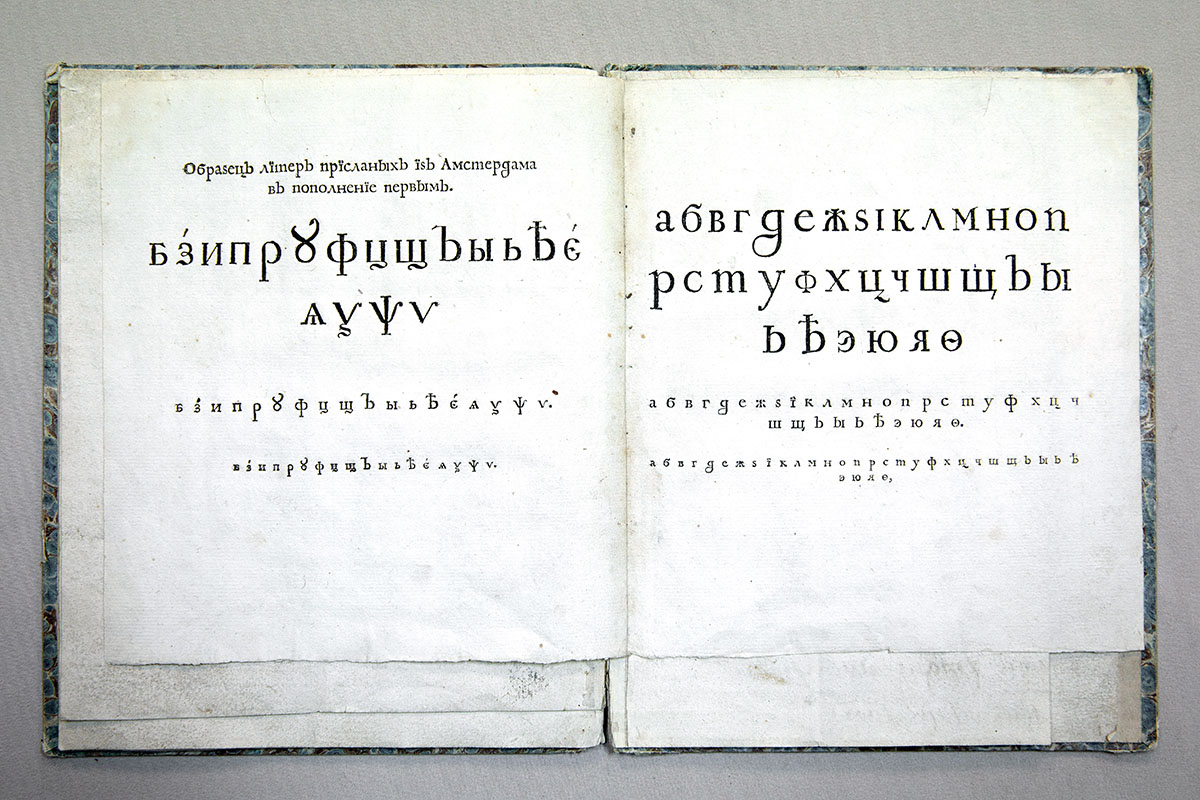 Обраѕецъ лїтеръ прїсланыхъ їѕъ Амстердама
въ пополненїе первымъ.
бз́ипрꙋ́фцщъыьѣє́
ѧу̨ѱѵ
бз́ипрꙋ́фцщъыьѣє́ѧу̨ѱѵ.
бз́ипрꙋ́фцщъыьѣє́ѧу̨ѱѵ.
абвгдежѕіклмноп
рстуфхцчшщъы
ьѣэюяѳ
абвгдежѕїклмнопрстуфхцч
шщъыьѣэюяѳ.
абвгдежѕїклмнопрстуфхцчшщъыьѣ
эюяѳ,